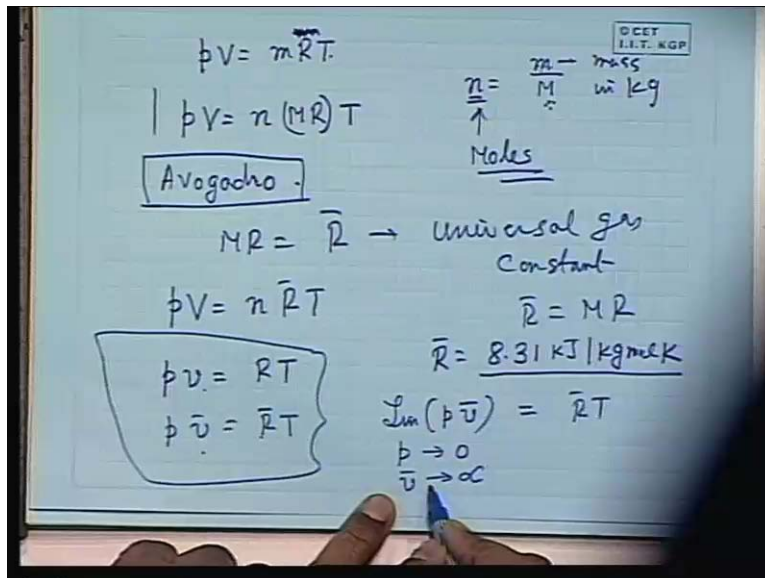 © CET
I.I.T. KGP
pV = mRT.
n = m/M → mass in kg
pV = n (MR) T
↑
Moles
Avogadro.
MR = R̄ → Universal gas
Constant
pV = n R̄T
R̄ = MR
R̄ = 8.31 kJ/kgmolK
pv = RT
pv̄ = R̄T
Lim (pv̄) = R̄T
p → 0
v̄ → ∝